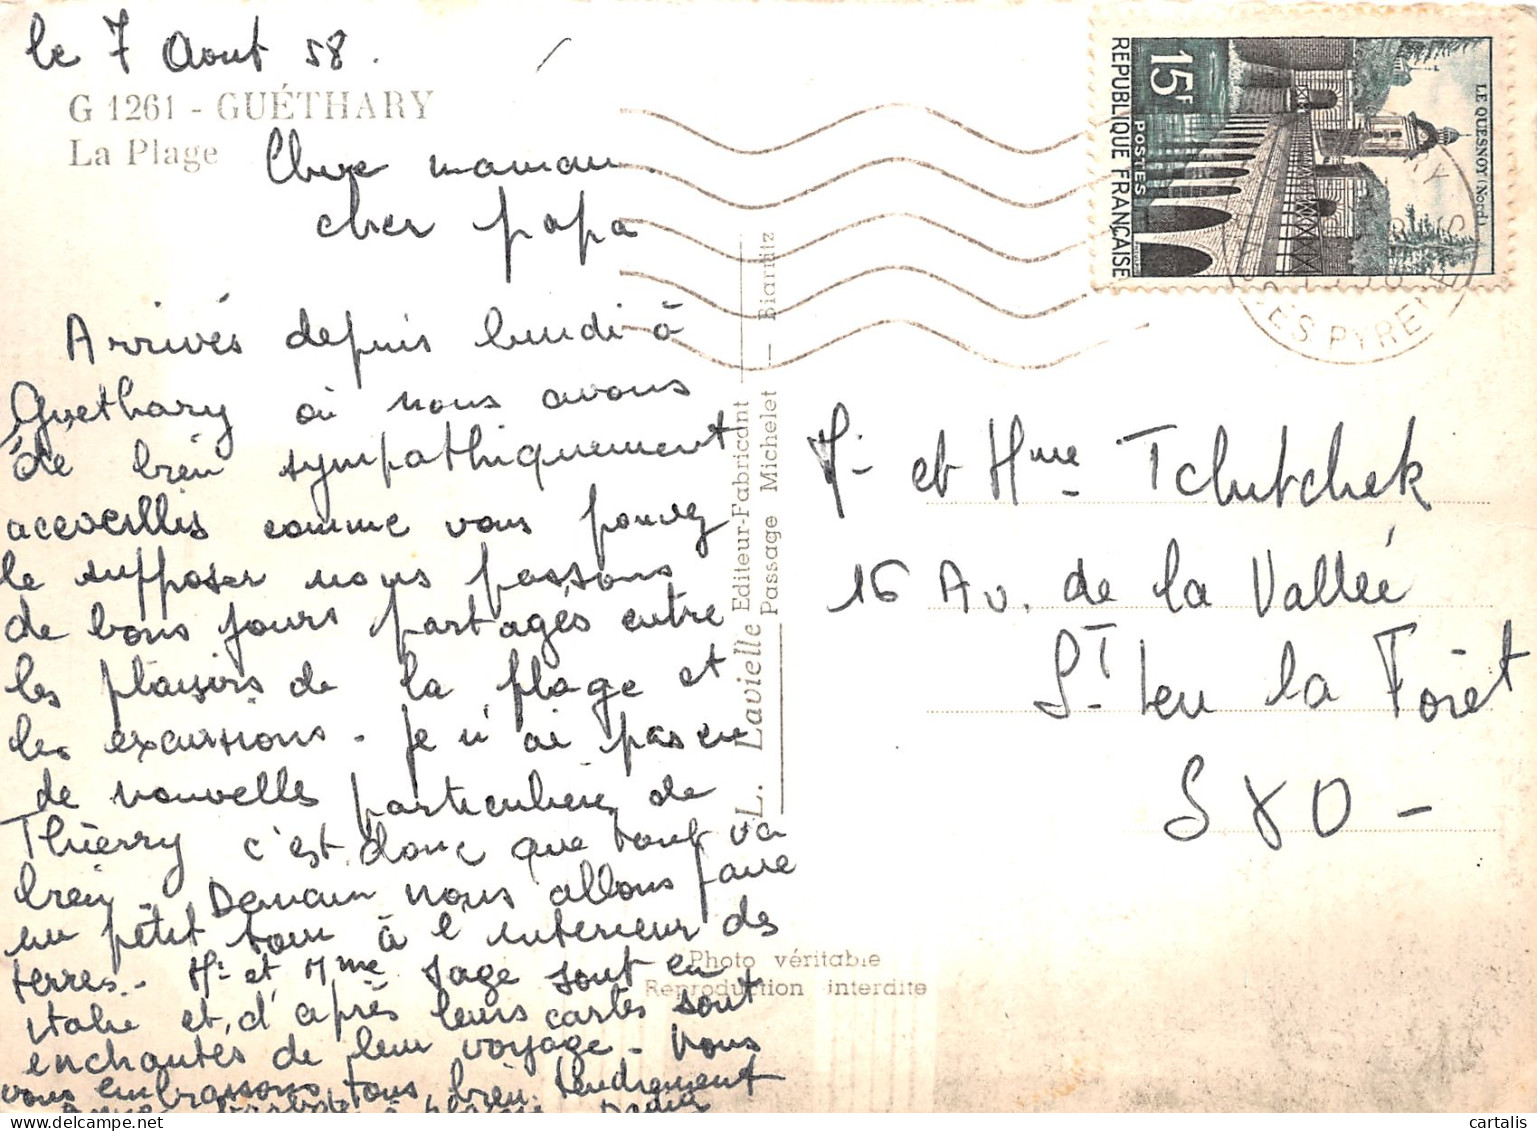 le 7 Aout 58.
G 1261 - GUÉTHARY
La Plage
Chere maman
cher papa
Arrivés depuis lundi à
Guethary où nous avons
été bien sympathiquement
acceuillis comme vous pouvez
le supposer nous passons
de bons jours partagés entre
les plaisirs de la plage et
les excursions - Je n'ai pas eu
de nouvelles particulières de
Thierry c'est donc que tout va
bien - Demain nous allons faire
un pêtit tour à l'interieur des
terres - Mr et Mme Sage sont en
italie et d'après leurs cartes sont
enchantés de leur voyage - Nous
vous embrassons tous bien tendrement
L. Lavielle Editeur-Fabricant
Passage Michelet — Biarritz
Photo véritable
Reproduction interdite
REPUBLIQUE FRANÇAISE
15F
POSTES
LE QUESNOY (Nord)
SES PYRENEES
Mr et Mme Tchutchek
16 Av. de la Valleé
St Leu la Forêt
S & O -
cartalis